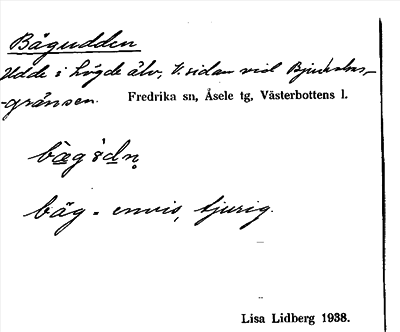 Bågudden
Udde i Lögde älv, V. sidan vid Bjurholms-
-gränsen. Fredrika sn, Åsele tg, Västerbottens l.
bäg - envis, tjurig.
Lisa Lidberg 1938.